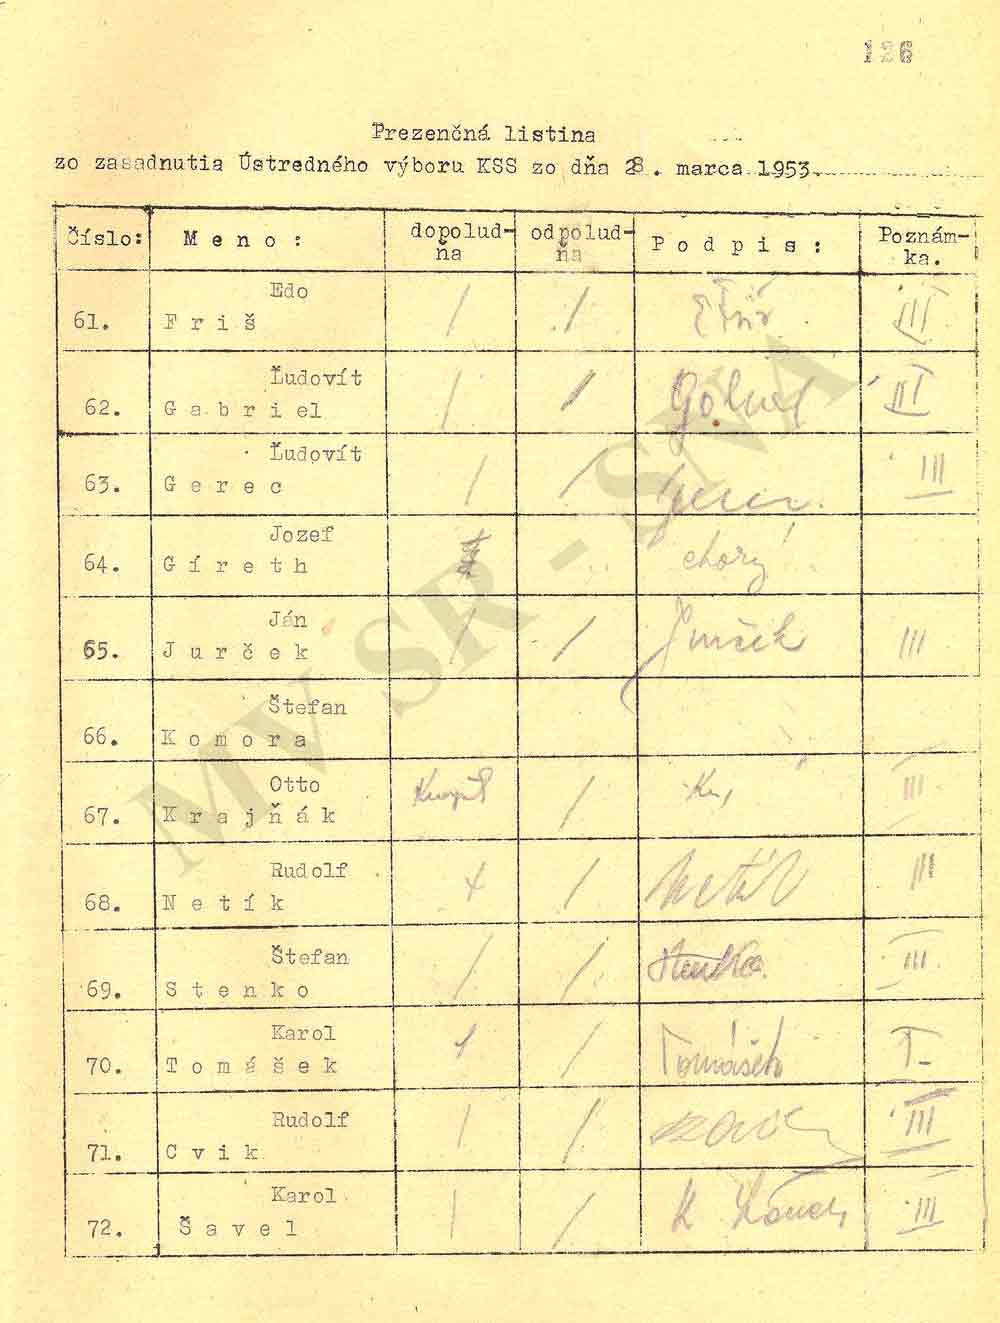 126
Prezenčná listina
zo zasadnutia Ústredného výboru KSS zo dňa 28. marca 1953.
Číslo: Meno: dopolud- odpolud- Podpis: Poznám-
ňa ňa ka.
Edo
61. Friš / / EFriš III
Ľudovít
62. Gabriel / / III
Ľudovít
63. Gerec / / III
Jozef
64. Gíreth chorý
Ján
65. Jurček / / Jurček III
Štefan
66. Komora
Otto
67. Krajňák / III
Rudolf
68. Netík / Netík III
Štefan
69. Stenko / / Stenko III
Karol
70. Tomášek / Tomášek I
Rudolf
71. Cvik / / III
Karol
72. Šavel / / K III
MV SR - SNA